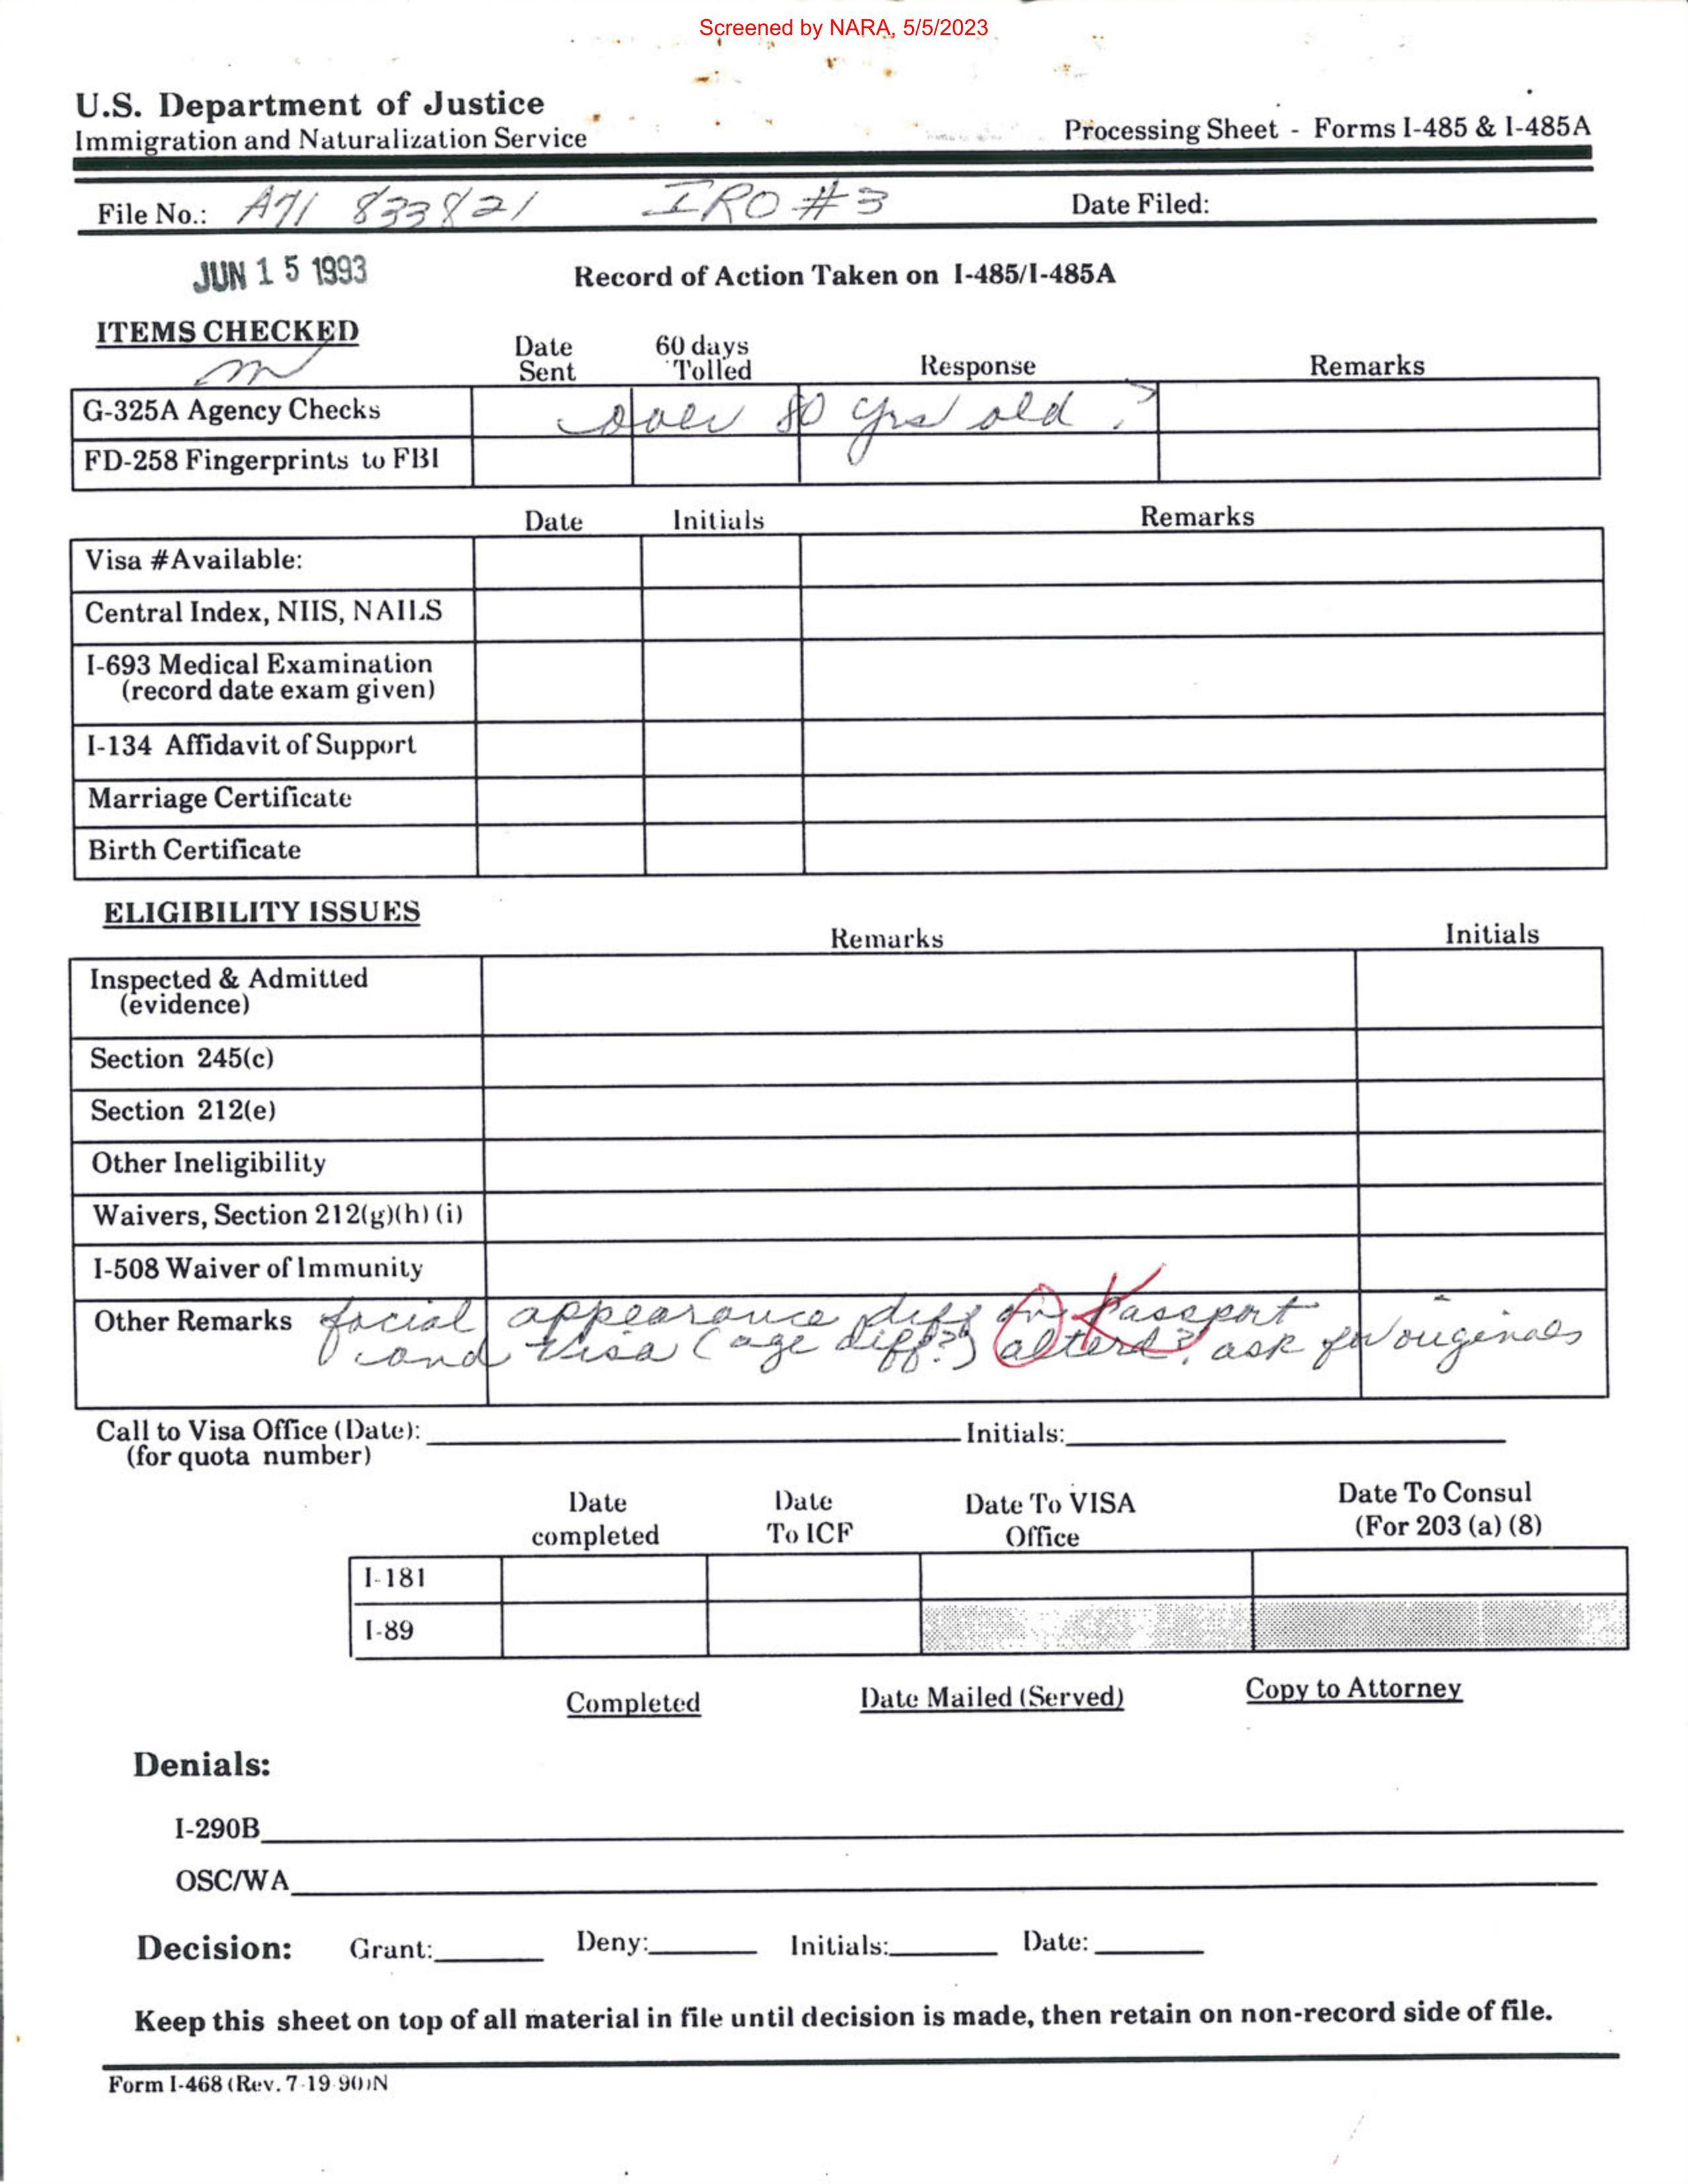 Screened by NARA, 5/5/2023
U.S. Department of Justice
Immigration and Naturalization Service
Processing Sheet - Forms I-485 & I-485A
File No.: A71 833821 IRO #3 Date Filed:
JUN 15 1993
Record of Action Taken on I-485/I-485A
ITEMS CHECKED
Date Sent 60 days Tolled Response Remarks
G-325A Agency Checks over 80 yrs old ?
FD-258 Fingerprints to FBI
Date Initials Remarks
Visa #Available:
Central Index, NIIS, NAILS
I-693 Medical Examination
(record date exam given)
I-134 Affidavit of Support
Marriage Certificate
Birth Certificate
ELIGIBILITY ISSUES
Remarks Initials
Inspected & Admitted
(evidence)
Section 245(c)
Section 212(e)
Other Ineligibility
Waivers, Section 212(g)(h) (i)
I-508 Waiver of Immunity
Other Remarks facial appearance diff on Passport
and Visa (age diff?) alterd? ask for originals
OK
Call to Visa Office (Date): Initials:
(for quota number)
Date completed Date To ICF Date To VISA Office Date To Consul (For 203 (a) (8)
I-181
I-89
Completed Date Mailed (Served) Copy to Attorney
Denials:
I-290B
OSC/WA
Decision: Grant: Deny: Initials: Date:
Keep this sheet on top of all material in file until decision is made, then retain on non-record side of file.
Form I-468 (Rev. 7-19-90)N